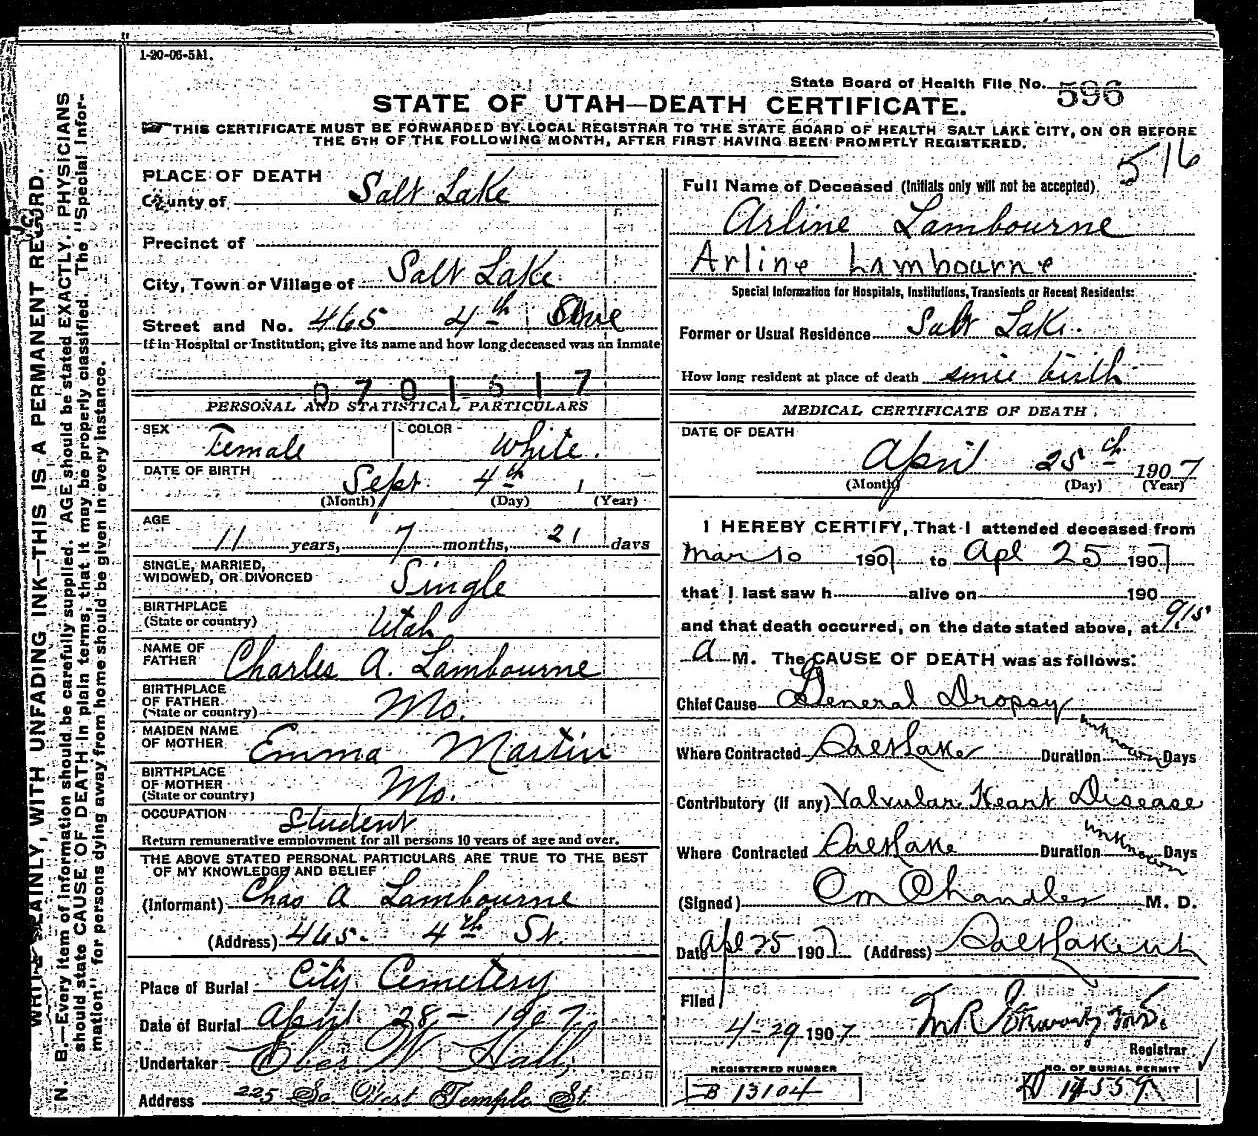 1-20-06-5M.
State Board of Health File No. 596
STATE OF UTAH—DEATH CERTIFICATE.
THIS CERTIFICATE MUST BE FORWARDED BY LOCAL REGISTRAR TO THE STATE BOARD OF HEALTH SALT LAKE CITY, ON OR BEFORE
THE 5TH OF THE FOLLOWING MONTH, AFTER FIRST HAVING BEEN PROMPTLY REGISTERED.
516
WRITE PLAINLY, WITH UNFADING INK—THIS IS A PERMANENT RECORD.
N. B.—Every item of information should be carefully supplied. AGE should be stated EXACTLY. PHYSICIANS
should state CAUSE OF DEATH in plain terms, that it may be properly classified. The "Special Infor-
mation" for persons dying away from home should be given in every instance.
PLACE OF DEATH
County of Salt Lake
Precinct of
City, Town or Village of Salt Lake
Street and No. 465 4th Ave
If in Hospital or Institution; give its name and how long deceased was an inmate
0701517
PERSONAL AND STATISTICAL PARTICULARS
SEX Female COLOR White.
DATE OF BIRTH Sept 4th
(Month) (Day) (Year)
AGE
11 years, 7 months, 21 days
SINGLE, MARRIED,
WIDOWED, OR DIVORCED Single
BIRTHPLACE
(State or country) Utah
NAME OF
FATHER Charles A. Lambourne
BIRTHPLACE
OF FATHER
(State or country) Mo.
MAIDEN NAME
OF MOTHER Emma Martin
BIRTHPLACE
OF MOTHER
(State or country) Mo.
OCCUPATION Student
Return remunerative employment for all persons 10 years of age and over.
THE ABOVE STATED PERSONAL PARTICULARS ARE TRUE TO THE BEST
OF MY KNOWLEDGE AND BELIEF
(Informant) Chas A Lambourne
(Address) 465. 4th St.
Place of Burial City Cemetery
Date of Burial April 28 - 1907
Undertaker Eber W Hall
Address 225 So West Temple St.
Full Name of Deceased (Initials only will not be accepted)
Arline Lambourne
Arline Lambourne
Special Information for Hospitals, Institutions, Transients or Recent Residents:
Former or Usual Residence Salt Lake.
How long resident at place of death since birth
MEDICAL CERTIFICATE OF DEATH.
DATE OF DEATH
April 25th 1907
(Month) (Day) (Year)
I HEREBY CERTIFY, That I attended deceased from
Mar 10 1907 to Apl 25 1907
that I last saw h alive on 190
and that death occurred, on the date stated above, at 915
A M. The CAUSE OF DEATH was as follows:
Chief Cause General Dropsy
Where Contracted Salt Lake Duration unknown Days
Contributory (if any) Valvular Heart Disease
Where Contracted Salt Lake Duration unknown Days
(Signed) Chandler M. D.
Date Apl 25 1907 (Address) Salt Lake Ut
Filed
4-29 1907
Registrar
REGISTERED NUMBER
B 13104
NO. OF BURIAL PERMIT
14559